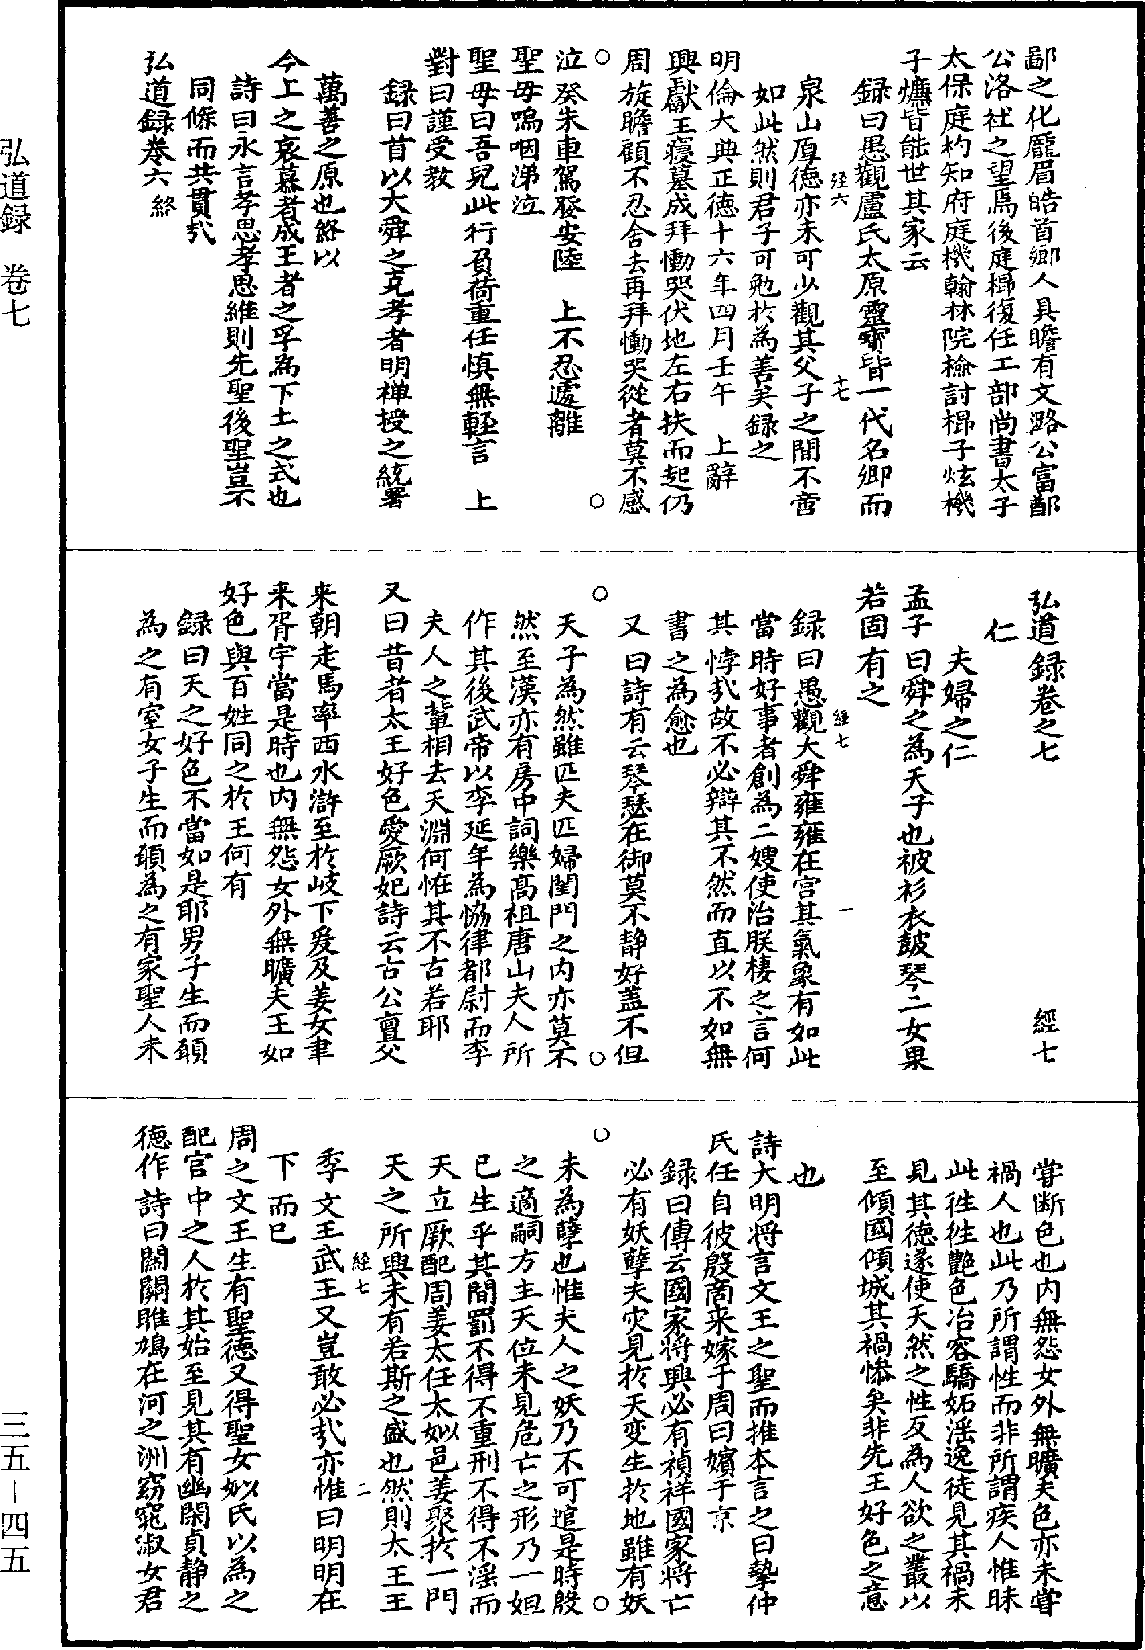 鄙之化龐眉皓首鄉人具瞻有文潞公富鄭
公洛社之望焉後庭㭿復任工部尚書太子
太保庭杓知府庭機翰林院檢討㭿子炫機
子爌皆能世其家云
錄曰愚觀盧氏太原靈寶皆一代名卿而
經六
十七
泉山厚德亦未可少觀其父子之間不啻
如此然則君子可勉於為善矣録之
明倫大典正德十六年四月壬午 上辭
興獻王寢墓成拜慟哭伏地左右扶而起仍
周旋瞻顧不忍舍去再拜慟哭從者莫不感
○ ○
泣癸未車駕發安陸 上不忍遽離
聖母嗚咽涕泣
聖母曰吾兒此行負荷重任慎無輕言 上
對曰謹受教
録曰首以大舜之克孝者明禅授之統署
萬善之原也終以
今上之哀慕者成王者之孚為下土之式也
詩曰永言孝思孝思維則先聖後聖豈不
同條而共貫哉
弘道録卷六終
弘道録卷之七 經七
仁
夫婦之仁
孟子曰舜之為天子也被袗衣鼓琴二女果
若固有之
經七
一
録曰愚觀大舜雍雍在宫其氣象有如此
當時好事者創為二嫂使治朕棲之言何
其悖哉故不必辯其不然而直以不如無
書之為愈也
又曰詩有云琴瑟在御莫不静好盖不但
○ ○
天子為然雖匹夫匹婦閨門之内亦莫不
然至漢亦有房中詞樂高祖唐山夫人所
作其後武帝以李延年為協律都尉而李
夫人之輩相去天淵何恠其不古若耶
又曰昔者太王好色愛厥妃詩云古公亶父
来朝走馬率西水滸至於岐下爰及姜女聿
来胥宇當是時也内無怨女外無曠夫王如
好色與百姓同之於王何有
録曰天之好色不當如是耶男子生而願
為之有室女子生而願為之有家聖人未
甞断色也内無怨女外無曠夫色亦未甞
禍人也此乃所謂性而非所謂疾人惟昧
此徃徃艷色冶容驕妬淫逸徒見其禍未
見其德遂使天然之性反為人欲之叢以
至傾國傾城其禍慘矣非先王好色之意
也
詩大明将言文王之聖而推本言之曰摯仲
氏任自彼殷商来嫁于周曰嬪于京
録曰傳云國家将興必有禎祥國家将亡
必有妖孽夫灾見於天変生於地雖有妖
○ ○
未為孽也惟夫人之妖乃不可逭是時殷
之適嗣方主天位未見危亡之形乃一妲
已生乎其間罰不得不重刑不得不淫而
天立厥配周姜太任太姒邑姜聚於一門
天之所興未有若斯之盛也然則太王王
經七
二
季文王武王又豈敢必哉亦惟曰明明在
下而已
周之文王生有聖德又得聖女姒氏以為之
配宫中之人於其始至見其有幽閑貞静之
德作詩曰關關雎鳩在河之洲窈窕淑女君
弘道録 卷七
三五—四五